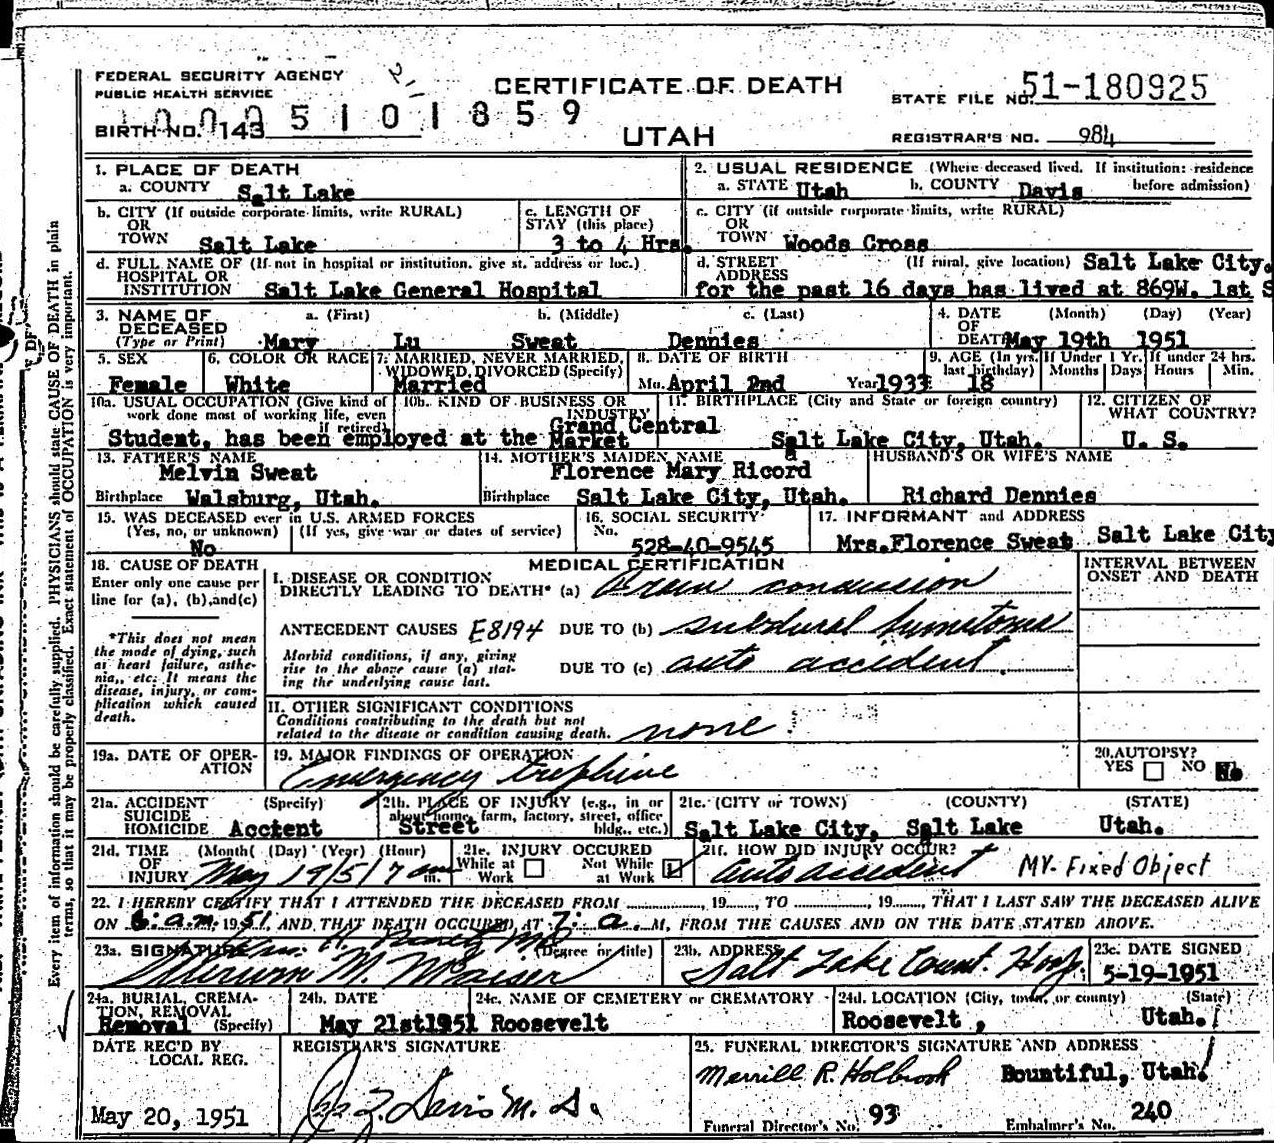 FEDERAL SECURITY AGENCY
PUBLIC HEALTH SERVICE
CERTIFICATE OF DEATH
STATE FILE NO. 51-180925
BIRTH NO. 143
5101859
UTAH
REGISTRAR'S NO. 984
1. PLACE OF DEATH
a. COUNTY Salt Lake
2. USUAL RESIDENCE (Where deceased lived. If institution: residence before admission)
a. STATE Utah b. COUNTY Davis
b. CITY (If outside corporate limits, write RURAL)
OR
TOWN Salt Lake
c. LENGTH OF
STAY (this place)
3 to 4 Hrs.
c. CITY (if outside corporate limits, write RURAL)
OR
TOWN Woods Cross
d. FULL NAME OF (If not in hospital or institution, give st. address or loc.)
HOSPITAL OR
INSTITUTION Salt Lake General Hospital
d. STREET
ADDRESS
(If rural, give location) Salt Lake City.
for the past 16 days has lived at 869W. 1st S
3. NAME OF
DECEASED
(Type or Print)
a. (First) b. (Middle) c. (Last)
Mary Lu Sweat Dennies
4. DATE
OF
DEATH
(Month) (Day) (Year)
May 19th 1951
5. SEX
Female
6. COLOR OR RACE
White
7. MARRIED, NEVER MARRIED,
WIDOWED, DIVORCED (Specify)
Married
8. DATE OF BIRTH
Mo. April 2nd Year 1933
9. AGE (In yrs.
last birthday)
18
If Under 1 Yr.
Months Days
If under 24 hrs.
Hours Min.
10a. USUAL OCCUPATION (Give kind of
work done most of working life, even
if retired)
10b. KIND OF BUSINESS OR
INDUSTRY
Student, has been employed at the Grand Central
Market
11. BIRTHPLACE (City and State or foreign country)
Salt Lake City, Utah.
12. CITIZEN OF
WHAT COUNTRY?
U. S.
13. FATHER'S NAME
Melvin Sweat
Birthplace Walsburg, Utah.
14. MOTHER'S MAIDEN NAME
Florence Mary Ricord
Birthplace Salt Lake City, Utah.
HUSBAND'S OR WIFE'S NAME
Richard Dennies
15. WAS DECEASED ever in U.S. ARMED FORCES
(Yes, no, or unknown) (If yes, give war or dates of service)
No
16. SOCIAL SECURITY
No.
528-40-9545
17. INFORMANT and ADDRESS
Mrs.Florence Sweat Salt Lake City
18. CAUSE OF DEATH
Enter only one cause per
line for (a), (b),and(c)
*This does not mean
the mode of dying, such
as heart failure, asthe-
nia,, etc. It means the
disease, injury, or com-
plication which caused
death.
MEDICAL CERTIFICATION
INTERVAL BETWEEN
ONSET AND DEATH
I. DISEASE OR CONDITION
DIRECTLY LEADING TO DEATH* (a) Brain concussion
ANTECEDENT CAUSES E8194 DUE TO (b) subdural hematoma
Morbid conditions, if any, giving
rise to the above cause (a) stat-
ing the underlying cause last.
DUE TO (c) auto accident
II. OTHER SIGNIFICANT CONDITIONS
Conditions contributing to the death but not
related to the disease or condition causing death. none
19a. DATE OF OPER-
ATION
19. MAJOR FINDINGS OF OPERATION
Emergency trephine
20. AUTOPSY?
YES NO No
21a. ACCIDENT
SUICIDE
HOMICIDE
(Specify)
Accient
21b. PLACE OF INJURY (e.g., in or
about home, farm, factory, street, office
bldg., etc.)
Street
21c. (CITY or TOWN) (COUNTY) (STATE)
Salt Lake City, Salt Lake Utah.
21d. TIME
OF
INJURY
(Month( (Day) (Year) (Hour)
May 19/51 7 am
m.
21e. INJURY OCCURED
While at
Work
Not While
at Work
21f. HOW DID INJURY OCCUR?
Auto accident MV-Fixed Object
22. I HEREBY CERTIFY THAT I ATTENDED THE DECEASED FROM 19 , TO 19 , THAT I LAST SAW THE DECEASED ALIVE
ON 6: a.m. 1951, AND THAT DEATH OCCURED AT 7: a. M, FROM THE CAUSES AND ON THE DATE STATED ABOVE.
23a. SIGNATURE (Degree or title)
23b. ADDRESS
Salt Lake Count. Hosp.
23c. DATE SIGNED
5-19-1951
24a. BURIAL, CREMA-
TION, REMOVAL
Removal (Specify)
24b. DATE
May 21st1951
24c. NAME OF CEMETERY or CREMATORY
Roosevelt
24d. LOCATION (City, town, or county) (State)
Roosevelt, Utah.
DATE REC'D BY
LOCAL REG.
May 20, 1951
REGISTRAR'S SIGNATURE
25. FUNERAL DIRECTOR'S SIGNATURE AND ADDRESS
Merrill R. Holbrook Bountiful, Utah.
Funeral Director's No. 93 Embalmer's No. 240
Every item of information should be carefully supplied. PHYSICIANS should state CAUSE OF DEATH in plain
terms, so that it may be properly classified. Exact statement of OCCUPATION is very important.